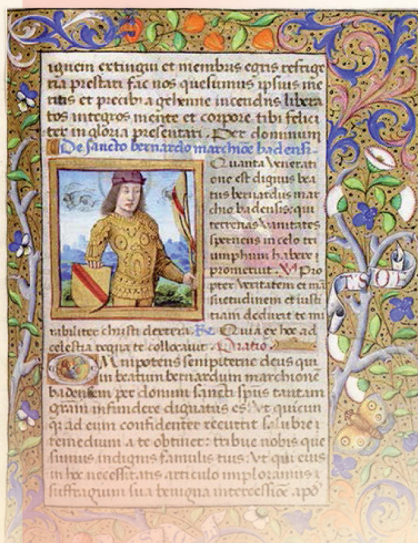 ignem extingui et membris egris refrige
ria prestari fac nos quesumus ipsius me
ritis et precibus gehenne incendiis libera
tos integros mente et corpore tibi felici
ter in gloria presentari. Per dominum
De sancto bernardo marchione badensi.
Quanta venerati
one est dignus bea
tus bernardus mar
chio badensis: qui
terrenas vanitates
spernens in celo tri
umphum habere
promeruit. V. Pro
pter veritatem et mā
suetudinem et iusti
tiam deduxit te mi
rabiliter christi dextera. R. Quia ex hoc ad
celestia regna te collocavit. Oratio.
Omnipotens sempiterne deus qui
in beatum bernardum marchionē
badensem per donum sancti sp̄us tantam
gratiam infundere dignatus es. Ut quicun
qz ad eum confidenter recurrit salubre
remedium a te obtinet: tribue nobis que
sumus indignis famulis tuis. Ut qui eius
in hoc necessitatis articulo imploramus
suffragium sua benigna intercessiōe apō
SOT